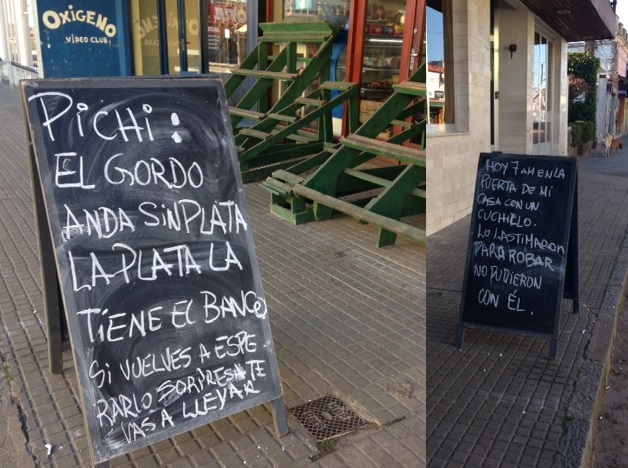 OXIGENO
VIDEO CLUB
PICHI:
EL GORDO
ANDA SIN PLATA
LA PLATA LA
TIENE EL BANCO
SI VUELVES A ESPE-
RARLO SORPRESA TE
VAS A LLEVAR
HOY 7 AM EN LA
PUERTA DE MI
CASA CON UN
CUCHILLO.
LO LASTIMARON
PARA ROBAR
NO PUDIERON
CON ÉL.